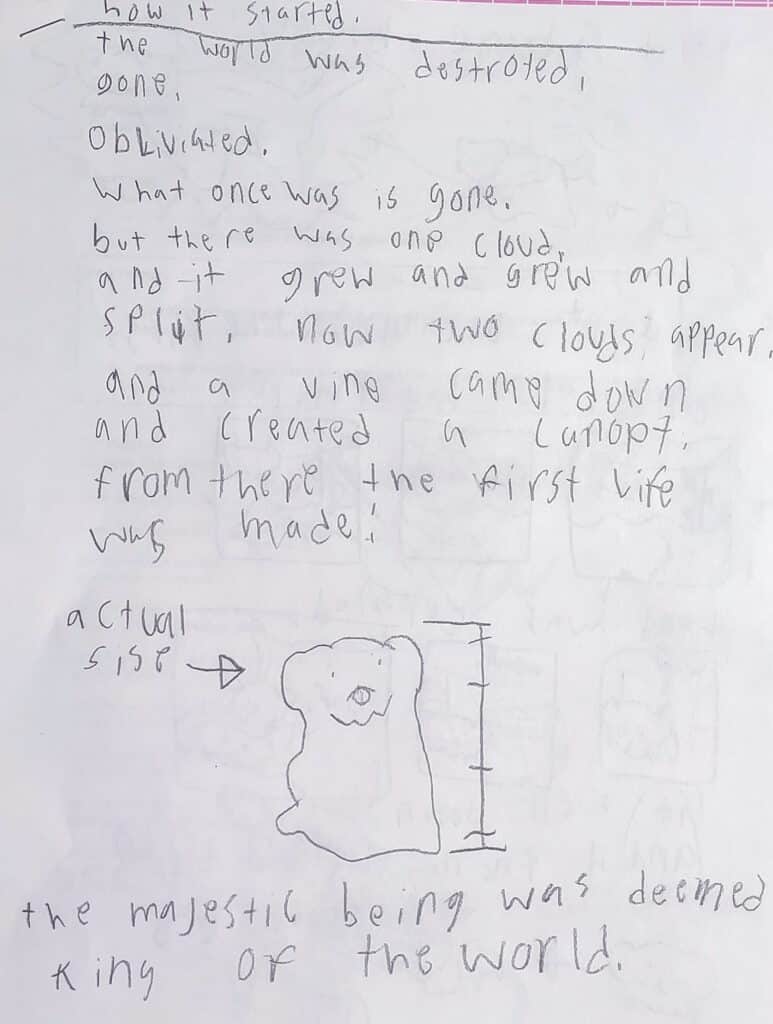 how it started.
the world was destroyed,
gone,
obliviated.
What once was is gone.
but there was one cloud,
and it grew and grew and
split. now two clouds appear.
and a vine came down
and created a canopy.
from there the first life
was made!
actual
sise
the majestic being was deemed
king of the world.